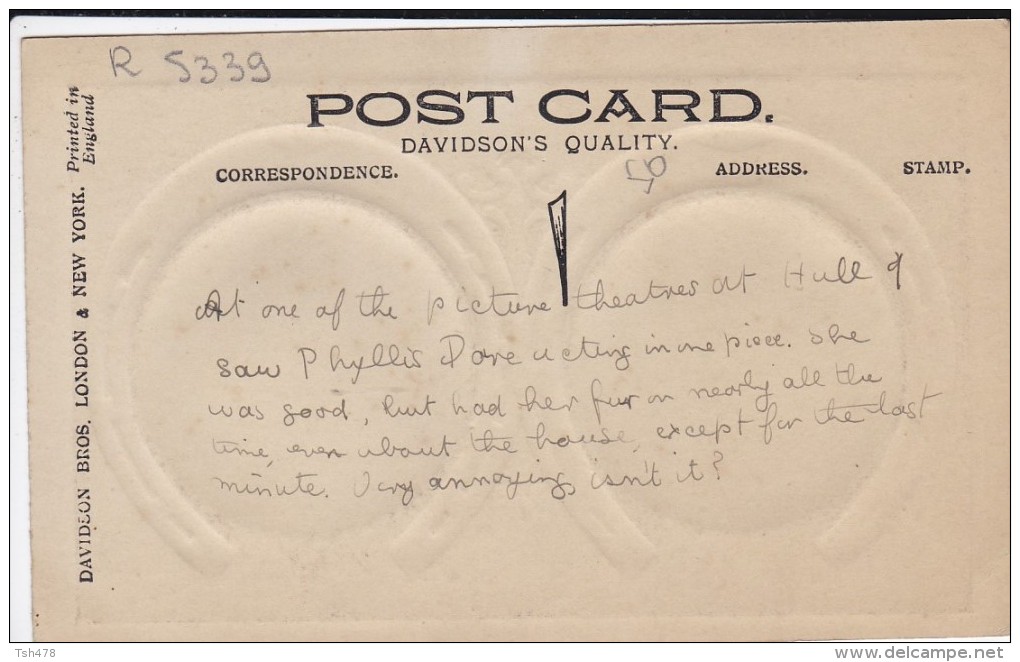 R 5339
POST CARD.
DAVIDSON'S QUALITY.
CORRESPONDENCE.
ADDRESS.
STAMP.
Printed in
England
DAVIDSON BROS. LONDON & NEW YORK.
At one of the picture theatres at Hull I
saw Phyllis Dare acting in one piece. She
was good, but had her fur on nearly all the
time, even about the house, except for the last
minute. Very annoying, isn't it?
Tsh478
www.delcampe.net